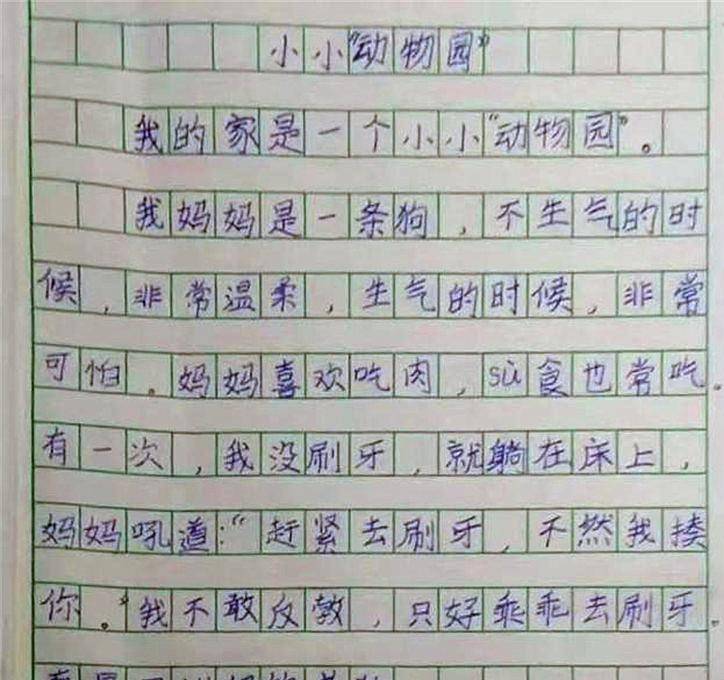 小小“动物园”
我的家是一个小小“动物园”。
我妈妈是一条狗，不生气的时
候，非常温柔，生气的时候，非常
可怕。妈妈喜欢吃肉，sù食也常吃。
有一次，我没刷牙，就躺在床上，
妈妈吼道：“赶紧去刷牙，不然我揍
你。”我不敢反教，只好乖乖去刷牙。